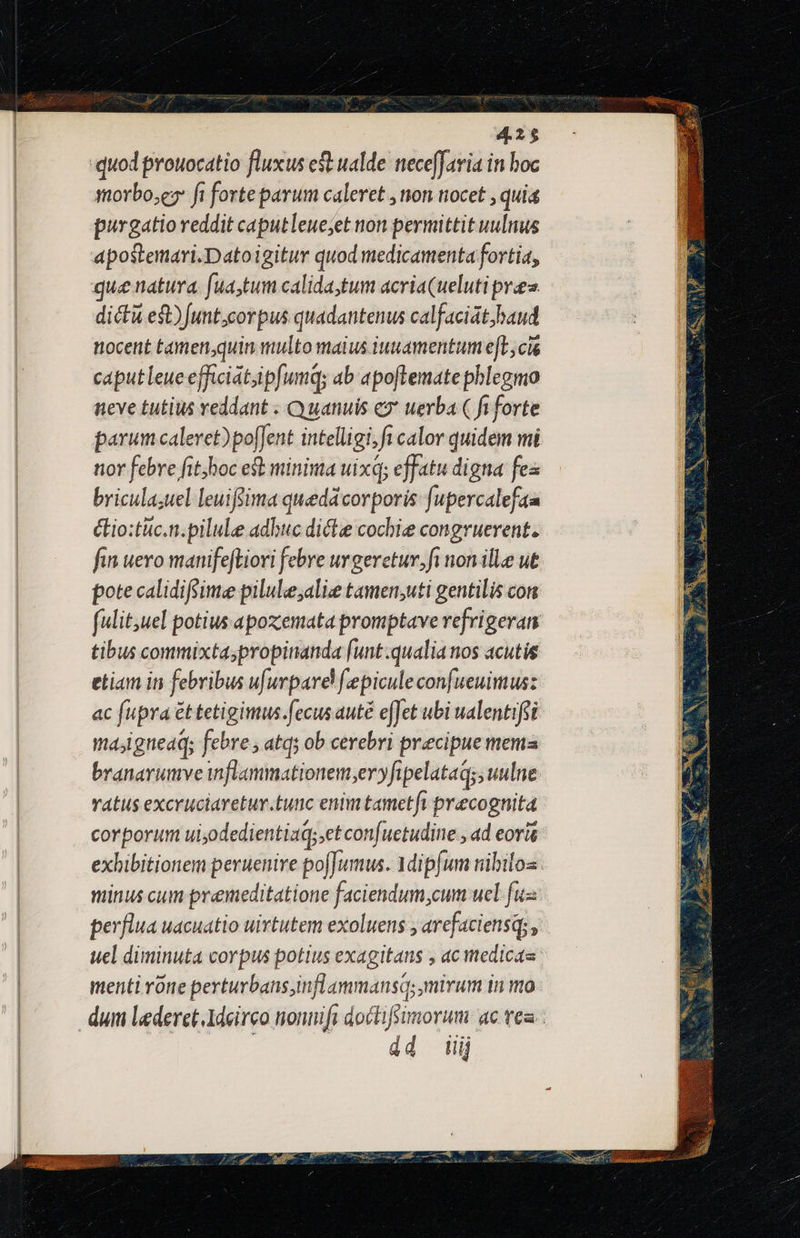 425
quod prouocatio fluxus est ualde necessaria in hoc
morbo,& si forte parum caleret , non nocet , quia
purgatio reddit caput leue,et non permittit uulnus
apostemari.Dato igitur quod medicamenta fortia,
quæ natura sua,tum calida,tum acria(ueluti præ=
dictũ est)sunt,corpus quadantenus calfaciãt,haud
nocent tamen,quin multo maius iuuamentum est,cũ
caput leue efficiãt,ipsumq; ab apostemate phlegmo
neve tutius reddant . Quanuis & uerba ( si forte
parum caleret)possent intelligi,si calor quidem mi
nor febre sit,hoc est minima uixq; effatu digna fe=
bricula,uel leuissima quædã corporis supercalefa=
ctio:tũc.n.pilulæ adhuc dictæ cochiæ congruerent.
sin uero manifestiori febre urgeretur,si non illæ ut
pote calidissimæ pilulæ,aliæ tamen,uti gentilis con
sulit,uel potius apozemata promptave refrigeran
tibus commixta,propinanda sunt:qualia nos acutis
etiam in febribus usurpare sæpicule consueuimus:
ac supra et tetigimus.secus autẽ esset ubi ualentissi
ma,igneaq; febre , atq; ob cerebri præcipue mem=
branarumve inflammationem,erysipelataq;, uulne
ratus excruciaretur.tunc enim tametsi præcognita
corporum ui,odedientiaq;,et consuetudine , ad eorũ
exhibitionem peruenire possumus. Idipsum nihilo=
minus cum præmeditatione faciendum,cum uel su=
perflua uacuatio uirtutem exoluens , arefaciensq;,
uel diminuta corpus potius exagitans , ac medica=
menti rõne perturbans,inflammansq;,mirum in mo
dum læderet.Idcirco nonnisi doctissimorum ac re=
dd iiij